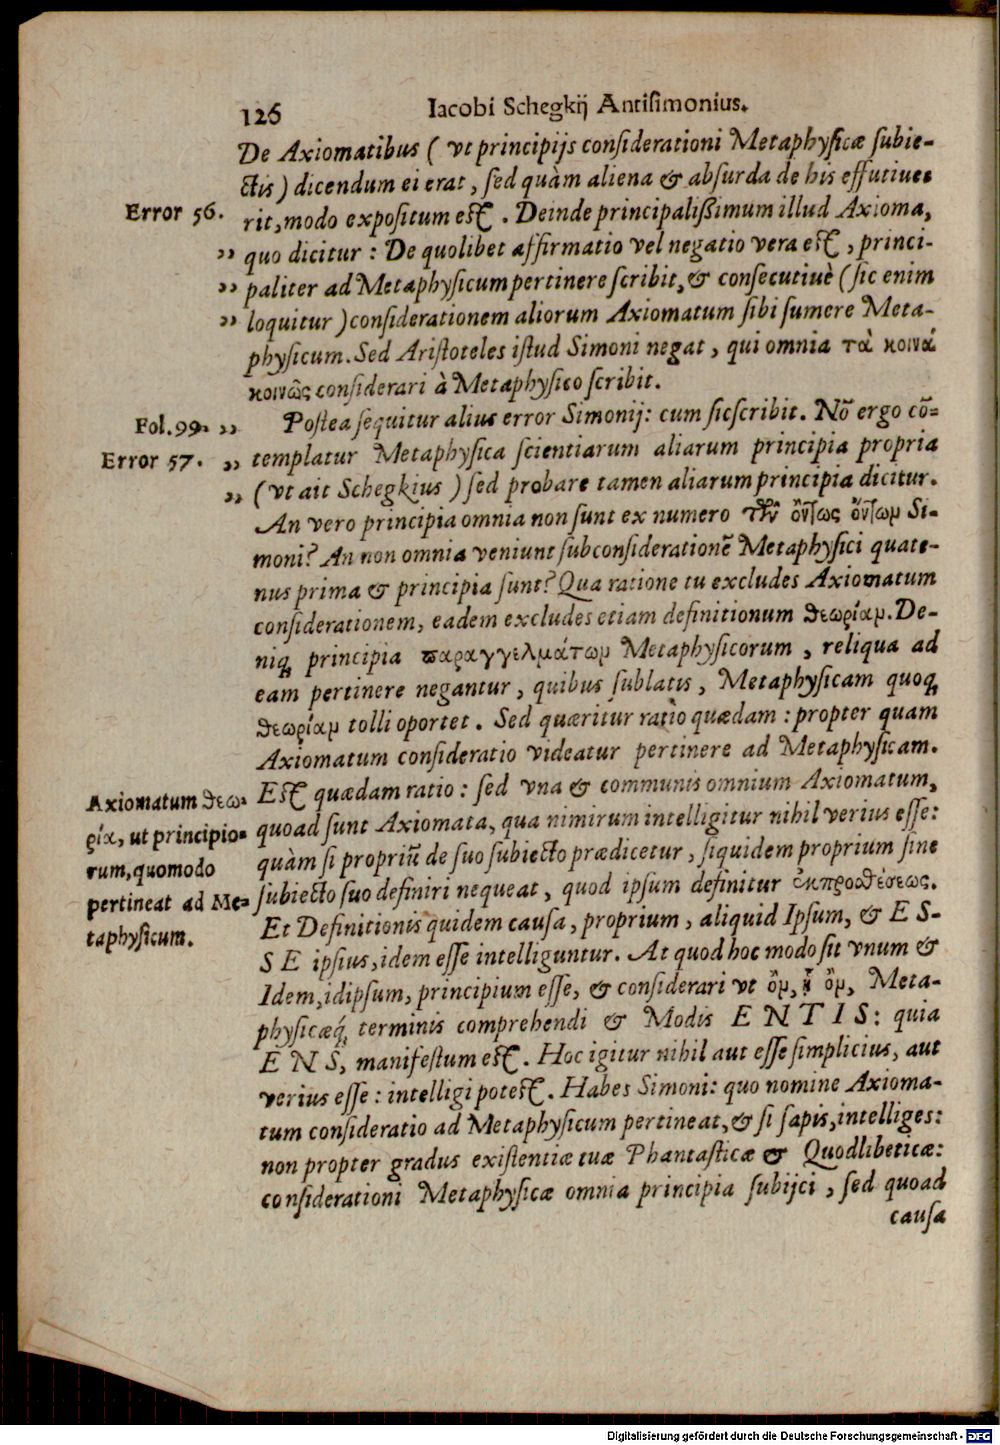 126
Iacobi Schegkij Antisimonius.
De Axiomatibus ( vt principijs considerationi Metaphysicæ subie-
ctis ) dicendum ei erat, sed quàm aliena & absurda de his effutiue-
Error 56.
rit, modo expositum est. Deinde principalißimum illud Axioma,
,, quo dicitur : De quolibet affirmatio vel negatio vera est, princi-
,, paliter ad Metaphysicum pertinere scribit, & consecutiuè (sic enim
,, loquitur ) considerationem aliorum Axiomatum sibi sumere Meta-
physicum. Sed Aristoteles istud Simoni negat, qui omnia τὰ κοινά
κοινῶς considerari à Metaphysico scribit.
Fol. 99. ,,
Postea sequitur alius error Simonij: cum sic scribit. Nō ergo cō=
Error 57. ,,
templatur Metaphysica scientiarum aliarum principia propria
,, (vt ait Schegkius ) sed probare tamen aliarum principia dicitur.
An vero principia omnia non sunt ex numero τῶν ὄντως ὄντων Si-
moni? An non omnia veniunt sub consideratione͂ Metaphysici quate-
nus prima & principia sunt? Qua ratione tu excludes Axiomatum
considerationem, eadem excludes etiam definitionum θεωρίαν. De-
niq; principia παραγγελμάτων Metaphysicorum, reliqua ad
eam pertinere negantur, quibus sublatis, Metaphysicam quoq;
θεωρίαν tolli oportet. Sed quæritur ratio quædam : propter quam
Axiomatum consideratio videatur pertinere ad Metaphysicam.
Axiomatum θεω-
ρία, ut principio=
rum, quomodo
pertineat ad Me=
taphysicum.
Est quædam ratio : sed vna & communis omnium Axiomatum,
quoad sunt Axiomata, qua nimirum intelligitur nihil verius esse:
quàm si propriū de suo subiecto prædicetur, siquidem proprium sine
subiecto suo definiri nequeat, quod ipsum definitur ἐκπροσθέσεως.
Et Definitionis quidem causa, proprium, aliquid Ipsum, & E S-
S E ipsius, idem esse intelliguntur. At quod hoc modo sit vnum &
Idem, idipsum, principium esse, & considerari vt ὂν, ᾗ ὂν, Meta-
physicæq́; terminis comprehendi & Modis E N T I S: quia
E N S, manifestum est. Hoc igitur nihil aut esse simplicius, aut
verius esse : intelligi potest. Habes Simoni: quo nomine Axioma-
tum consideratio ad Metaphysicum pertineat, & si sapis, intelliges:
non propter gradus existentiæ tuæ Phantasticæ & Quodlibeticæ:
considerationi Metaphysicæ omnia principia subijci, sed quoad
causa
Digitalisierung gefördert durch die Deutsche Forschungsgemeinschaft - DFG